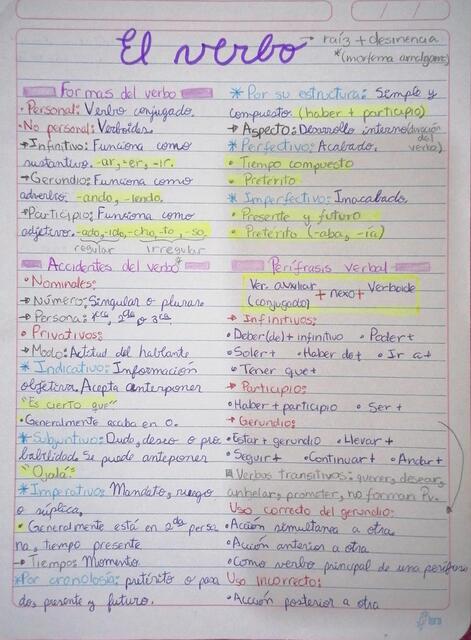 El verbo → raíz + desinencia
*(morfema amalgama)
Formas del verbo
• Personal: Verbo conjugado.
• No personal: Verboides.
→ Infinitivo: Funciona como
sustantivo. -ar, -er, -ir.
→ Gerundio: Funciona como
adverbio. -ando, -iendo.
→ Participio: Funciona como
adjetivo. -ado, -ido, -cho, -to, -so.
regular irregular
Accidentes del verbo*
• Nominales:
→ Número: Singular o plural.
→ Persona: 1era, 2da o 3era.
• Privativos:
→ Modo: Actitud del hablante
* Indicativo: Información
objetiva. Acepta anteponer
"Es cierto que"
• Generalmente acaba en o.
* Subjuntivo: Duda, deseo o pro
babilidad. Se puede anteponer
"Ojalá"
* Imperativo: Mandato, ruego
o súplica.
• Generalmente está en 2da perso
na, tiempo presente
→ Tiempo: Momento.
* Por cronología: pretérito o pasa
do, presente y futuro.
* Por su estructura: Simple y
compuesto. (haber + participio)
→ Aspecto: Desarrollo interno (duración del
verbo)
* Perfectivo: Acabado.
• Tiempo compuesto
• Pretérito
* Imperfectivo: Inacabado.
• Presente y futuro
• Pretérito (-aba, -ía)
Perífrasis verbal
Ver. auxiliar + nexo + Verboide
(conjugado)
→ Infinitivos:
• Deber(de) + infinitivo • Poder +
• Soler + • Haber de + • Ir a +
• Tener que +
→ Participio:
• Haber + participio • Ser +
→ Gerundio:
• Estar + gerundio • Llevar +
• Seguir + • Continuar + • Andar +
Verbos transitivos: querer, desear,
anhelar, prometer, no forman Pv.
Uso correcto del gerundio:
• Acción simultanea a otra
• Acción anterior a otra
• Como verbo principal de una perífrasis
Uso incorrecto:
• Acción posterior a otra